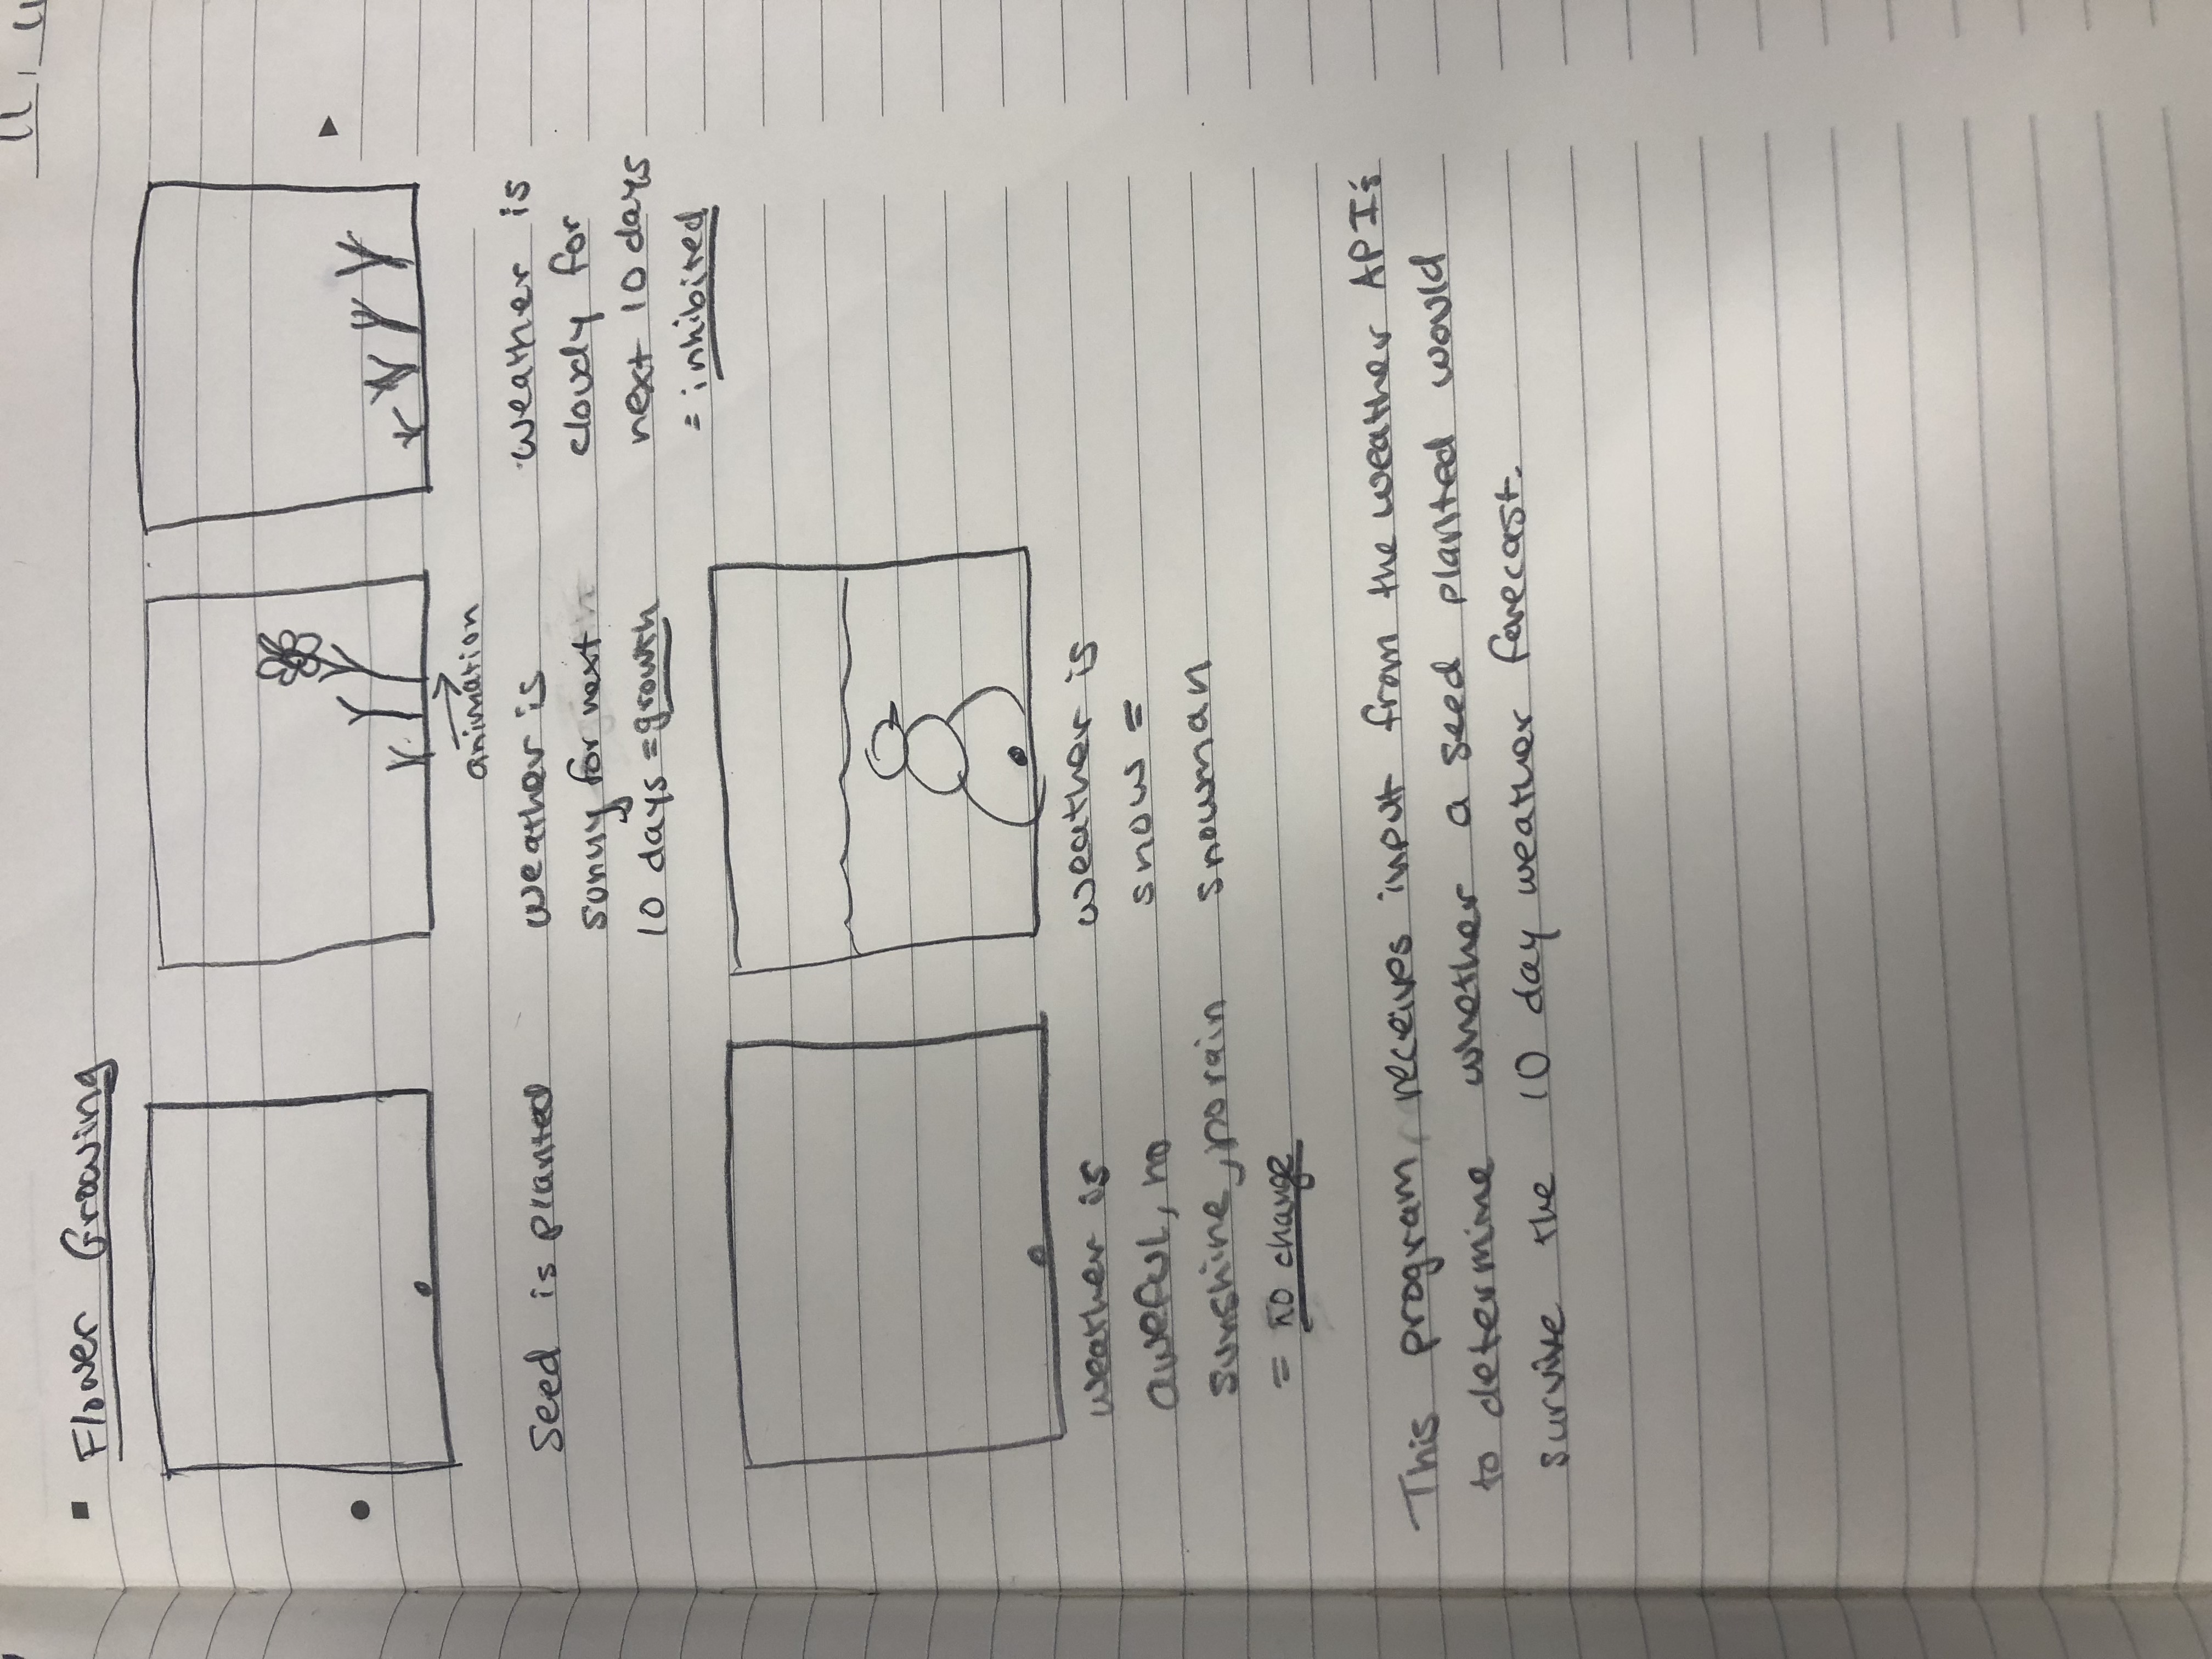 Flower Growing
animation
Seed is planted
weather is
sunny for next
10 days = growth
weather is
cloudy for
next 10 days
= inhibited
weather is
aweful, no
sunshine, no rain
= no change
weather is
snow =
snowman
This program receives input from the weather API's
to determine whether a seed planted would
survive the 10 day weather forecast.